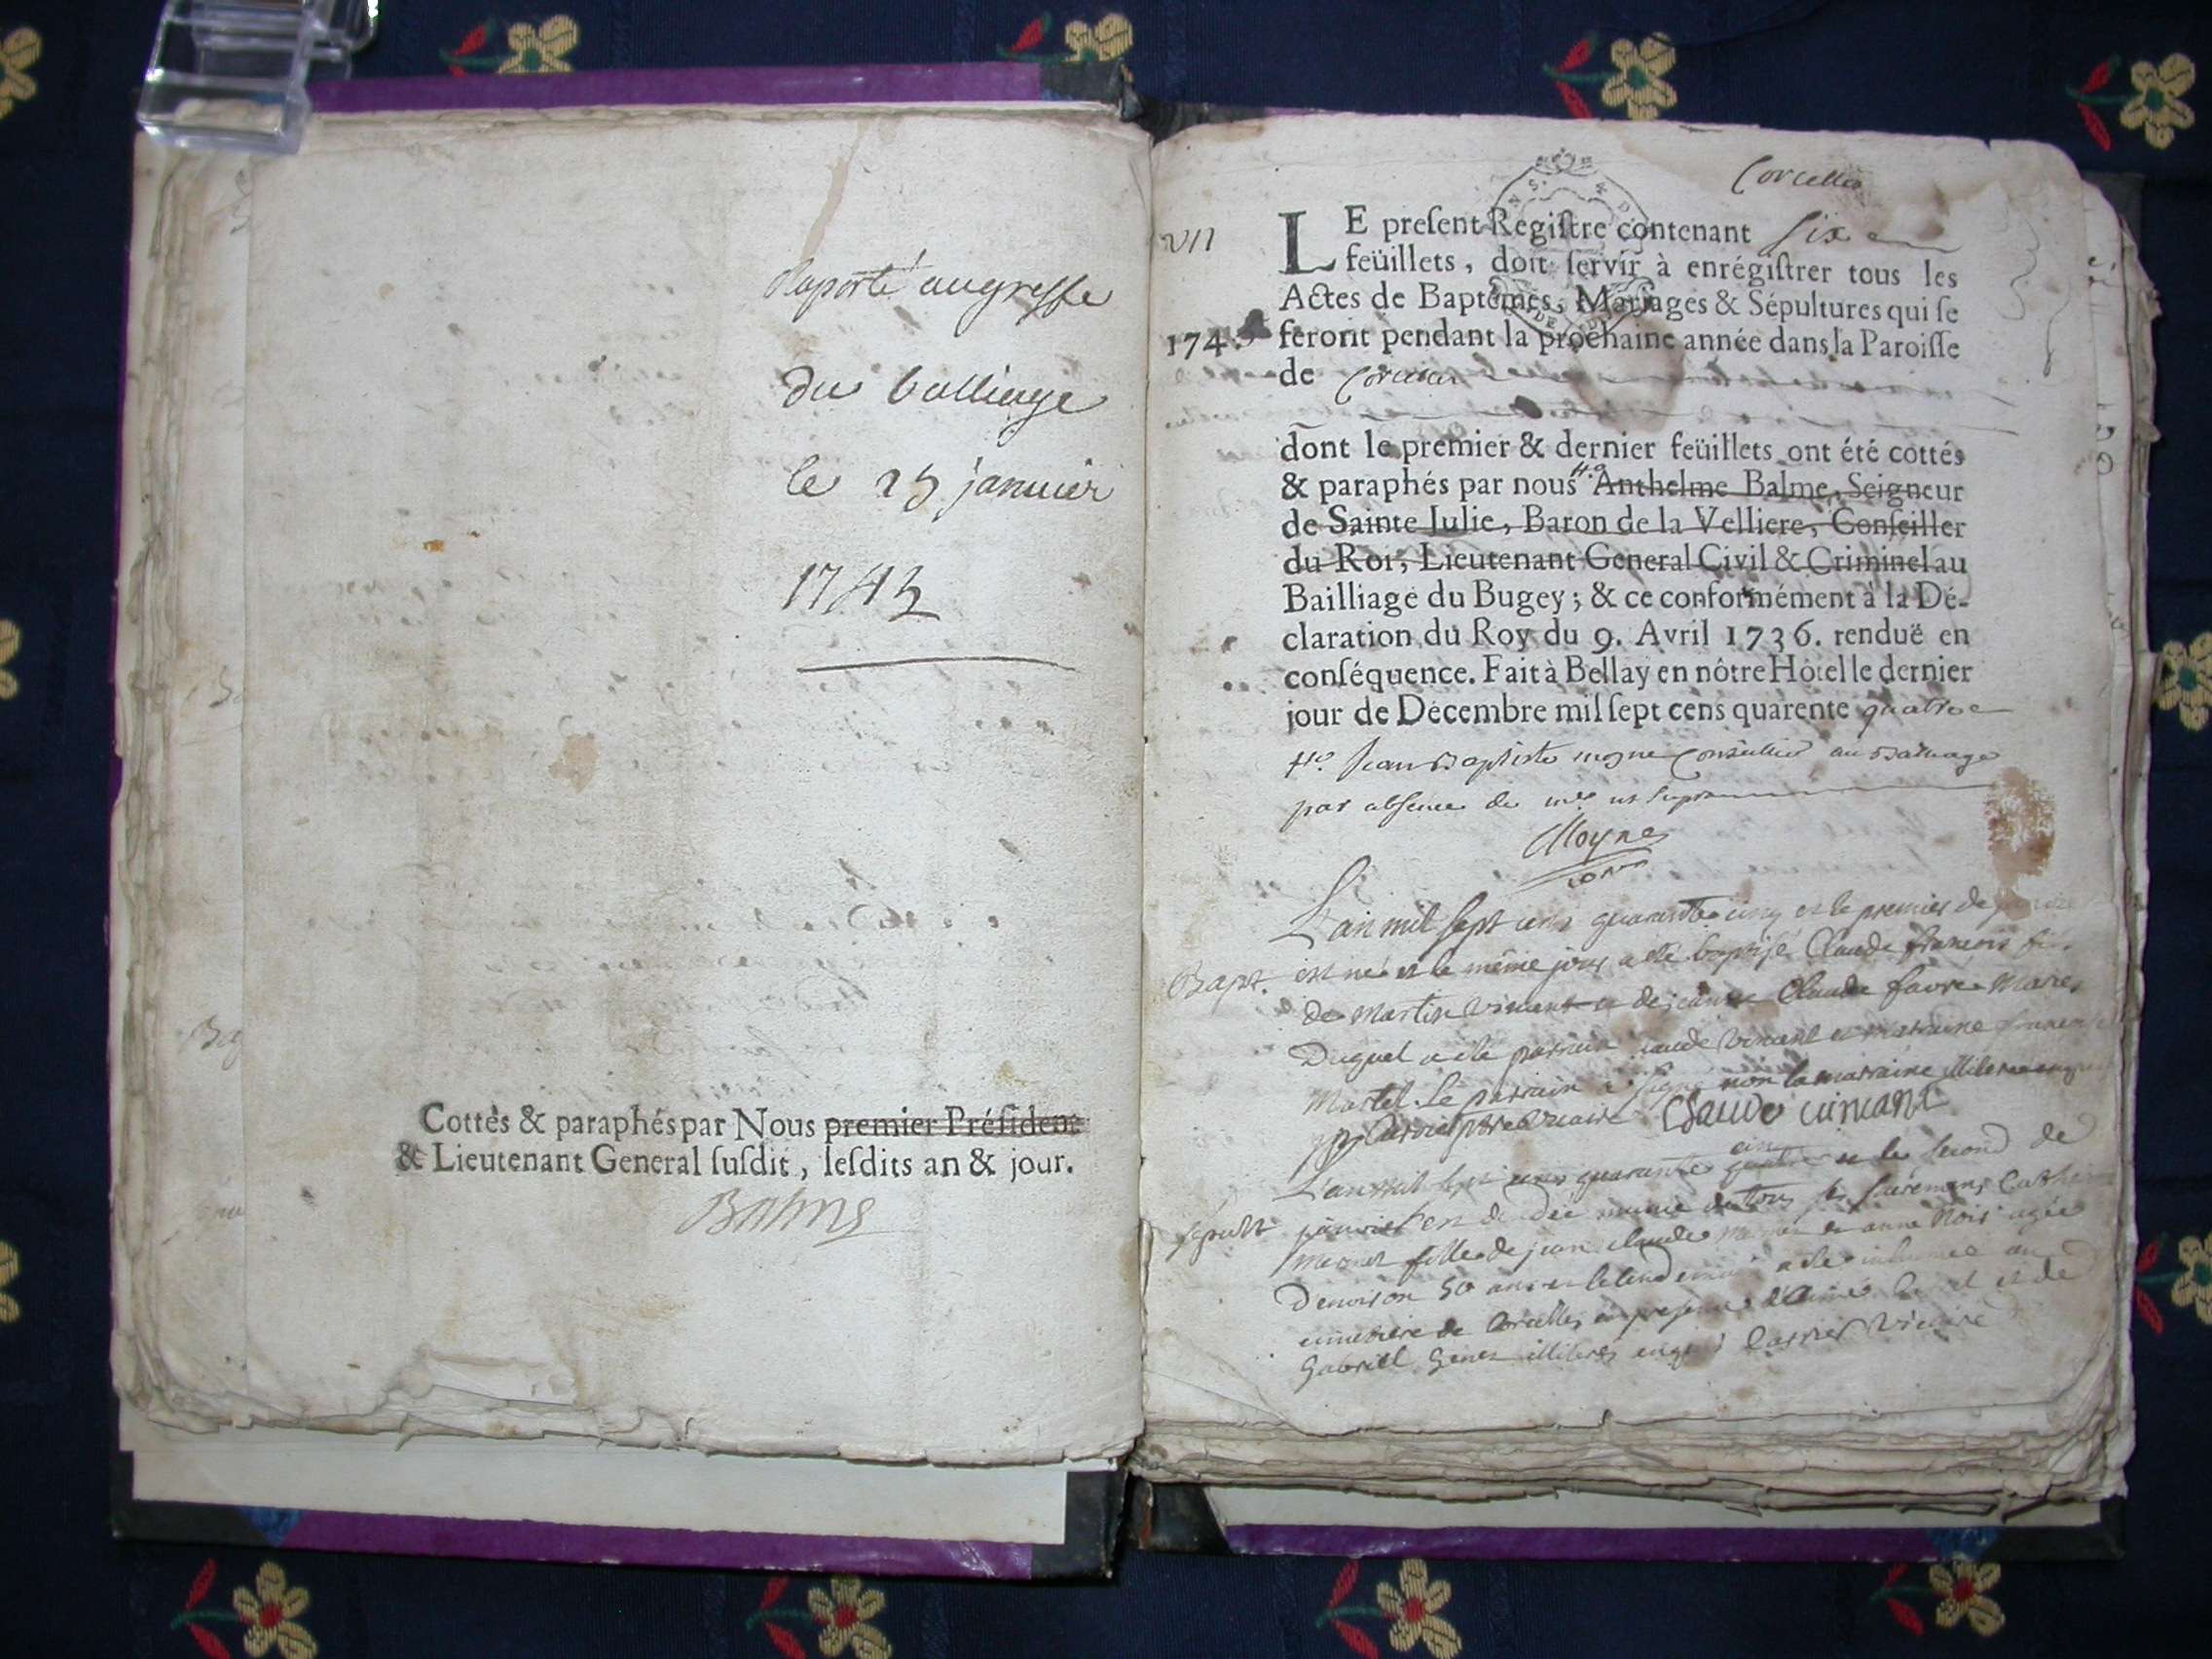 Raporté augreffe
du balliage
le 25 janvier
1743
Cottés & paraphés par Nous premier Président
& Lieutenant General ſuſdit, leſdits an & jour.
Balme
Corcelles
VII
LE preſent Regiſtre contenant ſix
feüillets, doit ſervir à enrégiſtrer tous les
Actes de Baptêmes, Mariages & Sépultures qui ſe
1745 feront pendant la prochaine année dans la Paroiſſe
de Corcelles
dont le premier & dernier feüillets ont été cottés
& paraphés par nous Anthelme Balme, Seigneur
de Sainte Julie, Baron de la Velliere, Conſeiller
du Roi, Lieutenant General Civil & Criminel au
Bailliage du Bugey ; & ce conformément à la Dé-
claration du Roy du 9. Avril 1736. renduë en
conſéquence. Fait à Bellay en nôtre Hôtel le dernier
jour de Décembre mil ſept cens quarente quatre
Jean Baptiste moyne Conseiller au Bailliage
par absence de ut supra
Moyne
L'an mil sept cens quarante cinq et le premier de janvier
Bapt. est né et le même jour a été baptisé Claude françois fils
de Martin vincent et de jeanne Claude favre Mariés
Duquel a été parrain Claude vincent et marraine françoise
Martel. Le parrain a signé non la marraine illiterée enquise
vicaire Claude vincant
L'an mil sept cens quarante quatre cinq et le second de
Sepult janvier est décédée munie de tous ses sacremens
fille de jean claude et anne agée
D'environ 50 ans et le lendemain a été inhumée au
cimetiere de Corcelles en presence d'Aimé et de
Gabriel illiterés enquis vicaire